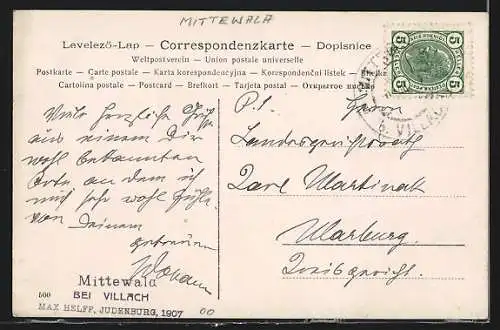 MITTEWALD
Levelező-Lap — Correspondenzkarte — Dopisnice
Weltpostverein — Union postale universelle
Postkarte — Carte postale — Karta korespondencyjna — Korespondenční lístek —
Cartolina postale — Postcard — Brefkort — Tarjeta postal —
5 5
5 5
VILLACH
Viele herzliche Grüße
aus einem Dir
wohl bekannten
Orte an dem ich
mich sehr wohl fühle
von Deinem
getreuen
P. T. Herrn
Landesgerichtsrath
Karl Martinak
Marburg
Kreisgericht.
Mittewald
BEI VILLACH
500
MAX HELFF, JUDENBURG, 1907
00